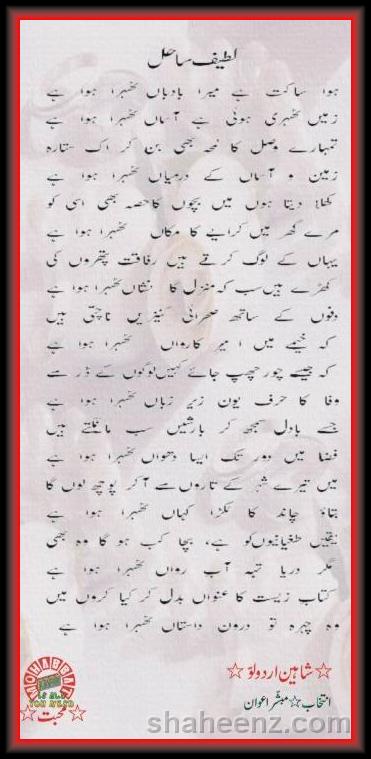 لطیف ساحل
ہوا ساکت ہے میرا بادباں ٹھہرا ہوا ہے
زمیں ٹھہری ہوئی ہے آسماں ٹھہرا ہوا ہے
تمہارے وصل کا لمحہ بھی بن کر اک ستارہ
زمین و آسماں کے درمیاں ٹھہرا ہوا ہے
کھلا دیتا ہوں میں بچوں کا حصہ بھی اسی کو
مرے گھر میں کرایے کا مکاں ٹھہرا ہوا ہے
یہاں کے لوگ کرتے ہیں رفاقت پتھروں کی
کھڑے ہیں سب کہ منزل کا نشاں ٹھہرا ہوا ہے
دفوں کے ساتھ صحرائی کنیزیں ناچتی ہیں
کہ خیمے میں امیر کارواں ٹھہرا ہوا ہے
کہ جیسے چور چھپ جائے کہیں لوگوں کے ڈر سے
وفا کا حرف یوں زیر زباں ٹھہرا ہوا ہے
جسے بادل سمجھ کر بارشیں سب مانگتے ہیں
فضا میں دور تک ایسا دھواں ٹھہرا ہوا ہے
میں تیرے شہر کے تاروں سے آ کر پوچھ لوں گا
بتاؤ چاند کا ٹکڑا کہاں ٹھہرا ہوا ہے
طغیانیوں کو ہے، بچا کب ہو گا وہ بھی
مگر دریا تہہ آب رواں ٹھہرا ہوا ہے
کتاب زیست کا عنواں بدل کر کیا کروں میں
وہ چہرہ تو درون داستاں ٹھہرا ہوا ہے
☆ شاہین اردو لو ☆
انتخاب ☆ مبشر اعوان
MOHABBAT
IS ALL
YOU NEED
☆ محبت ☆
shaheenz.com